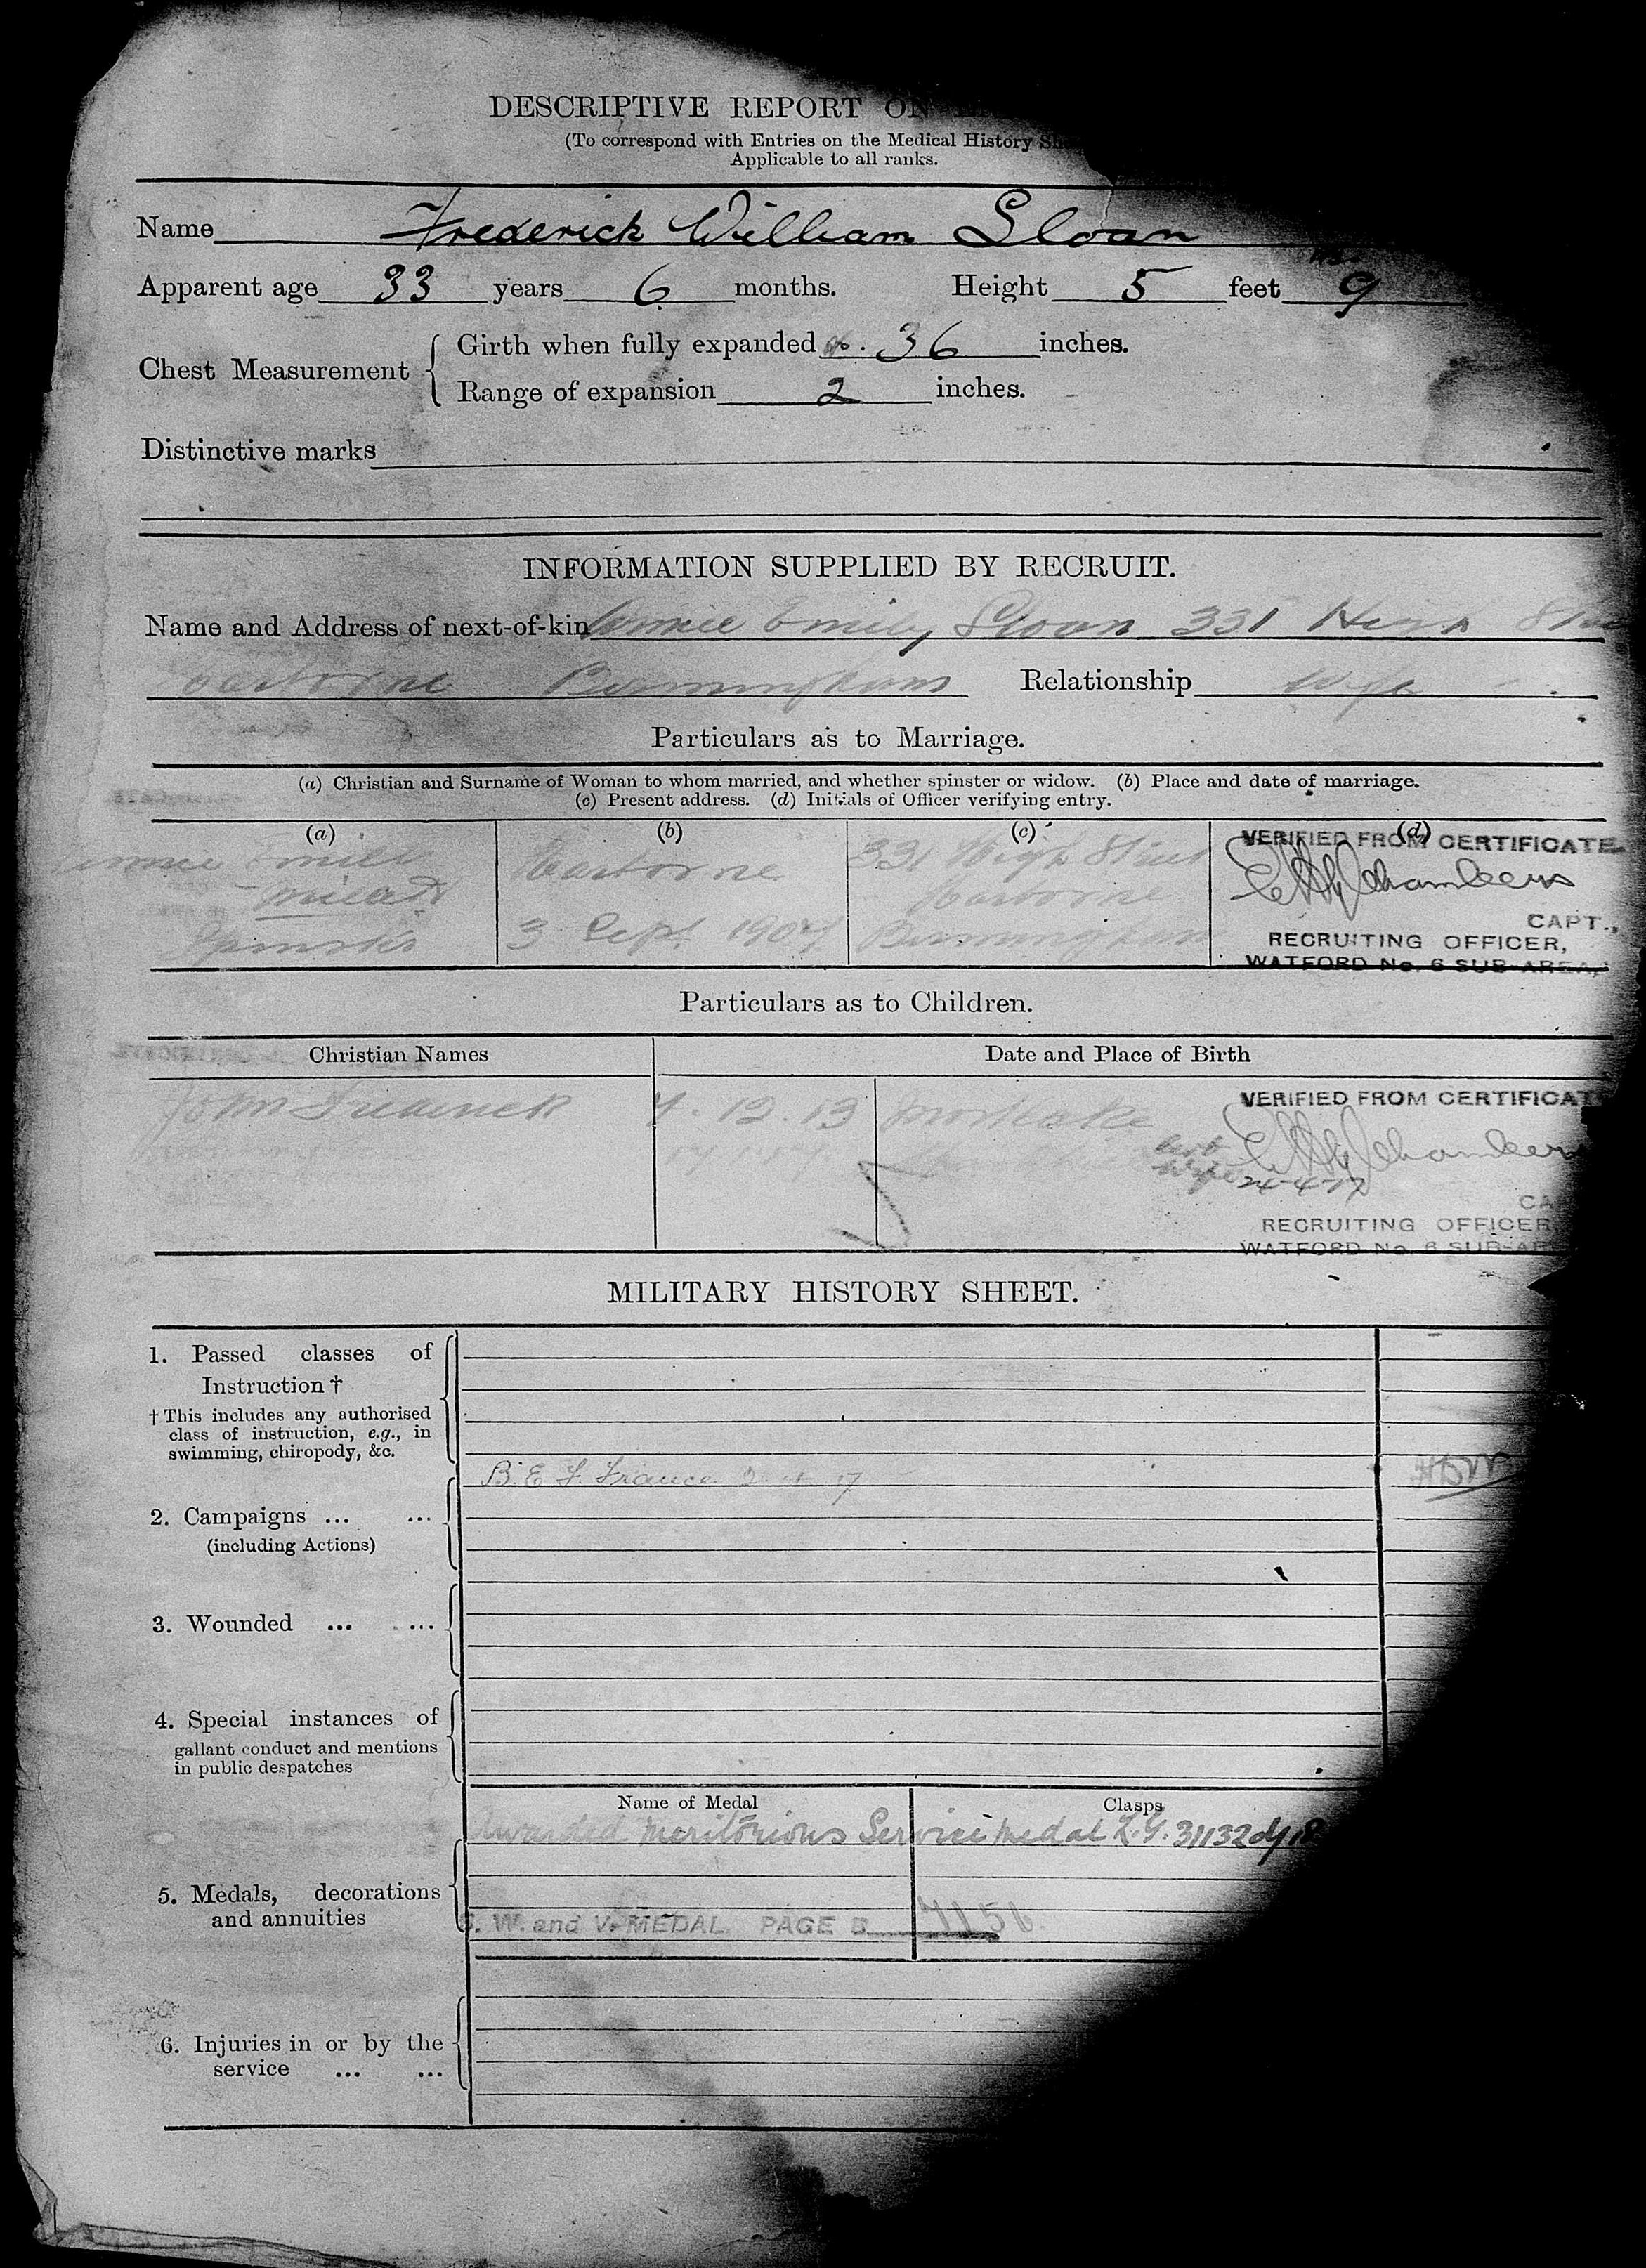 DESCRIPTIVE REPORT ON
(To correspond with Entries on the Medical History
Applicable to all ranks.
Name Frederick William Sloan
Apparent age 33 years 6 months. Height 5 feet 9
Chest Measurement
Girth when fully expanded 36 inches.
Range of expansion 2 inches.
Distinctive marks
INFORMATION SUPPLIED BY RECRUIT.
Name and Address of next-of-kin Annie Emily Sloan 331 High
Harborne Birmingham Relationship Wife
Particulars as to Marriage.
(a) Christian and Surname of Woman to whom married, and whether spinster or widow. (b) Place and date of marriage.
(c) Present address. (d) Initials of Officer verifying entry.
(a) (b) (c) (d)
Harborne
3 Sept 1907
331 High Street
Harborne
Birmingham
Spinster
VERIFIED FROM CERTIFICATE
Chambers
CAPT.,
RECRUITING OFFICER,
WATFORD No. 6 SUB-AREA,
Particulars as to Children.
Christian Names Date and Place of Birth
John Frederick 12.13 Mortlake
VERIFIED FROM
Chambers
24-4-17
RECRUITING OFFICER
WATFORD No. 6
MILITARY HISTORY SHEET.
1. Passed classes of
Instruction †
† This includes any authorised
class of instruction, e.g., in
swimming, chiropody, &c.
B.E.F. France 17
2. Campaigns ... ...
(including Actions)
3. Wounded ... ...
4. Special instances of
gallant conduct and mentions
in public despatches
Name of Medal Clasps
Awarded Meritorious Service Medal L.G. 31132
5. Medals, decorations
and annuities
W. and V. MEDAL PAGE B
6. Injuries in or by the
service ... ...